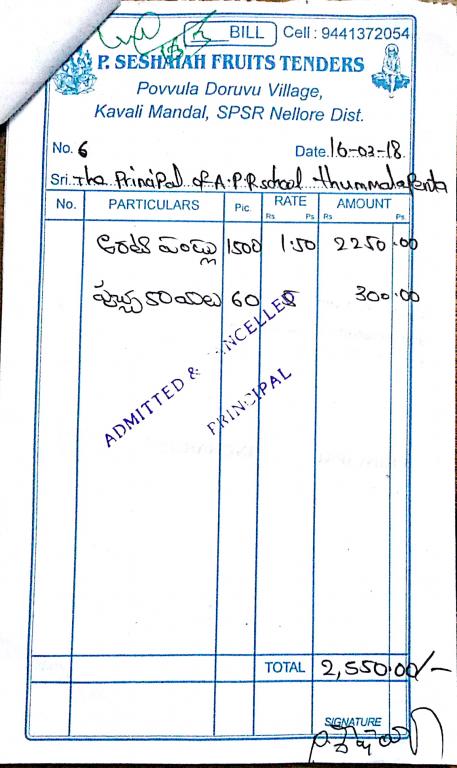 BILL Cell : 9441372054
P. SESHAIAH FRUITS TENDERS
Povvula Doruvu Village,
Kavali Mandal, SPSR Nellore Dist.
No. 6 Date. 16-03-18.
Sri. The Principal of A.P.R school thummalapenta
No. PARTICULARS Pic. RATE AMOUNT
Rs Ps Rs Ps
అరటి పండ్లు 1500 1.50 2250.00
పుచ్చకాయలు 60 5 300.00
ADMITTED & CANCELLED
PRINCIPAL
TOTAL 2,550.00/-
SIGNATURE